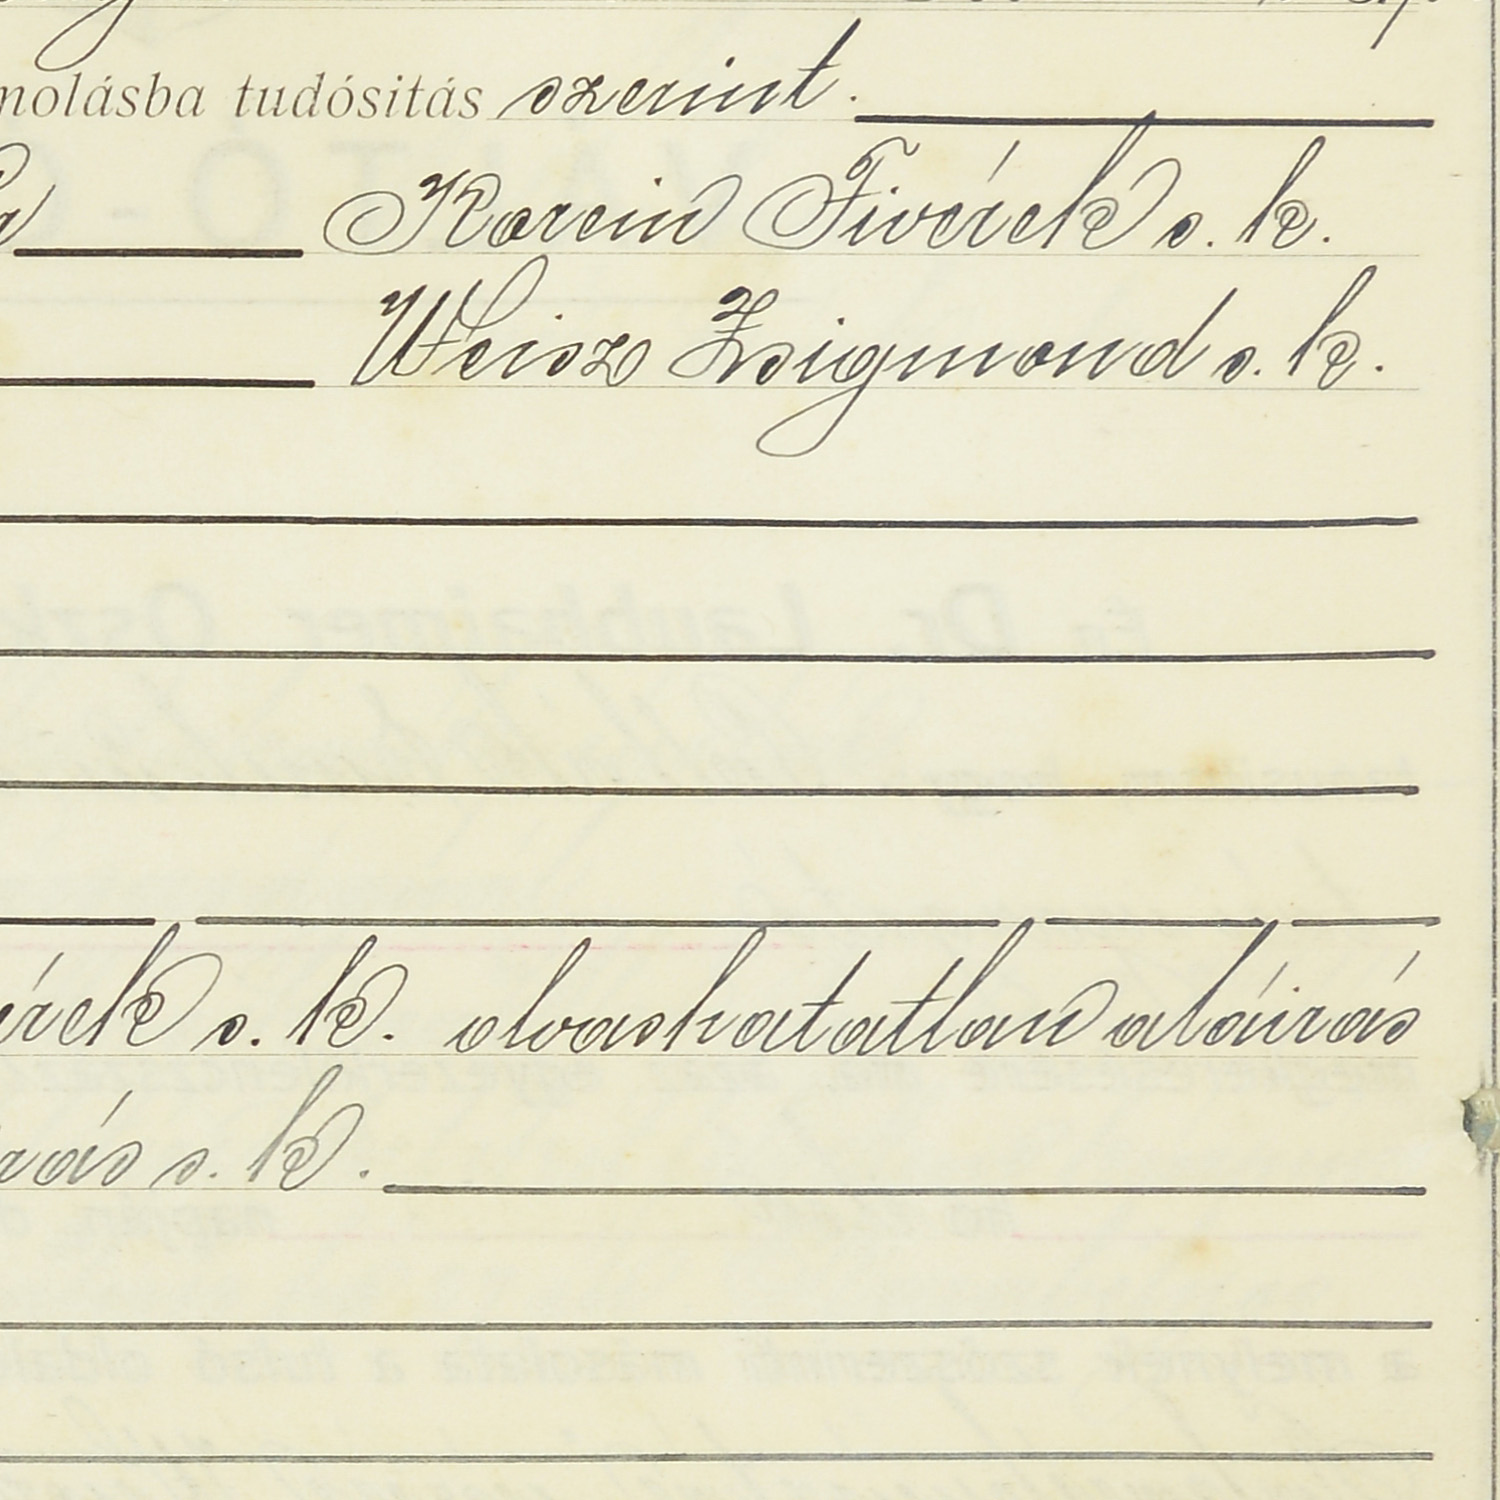 molásba tudósitás szerint.
Korein Tivérek s. k.
Weisz Zsigmond s. k.
érek s. k. olvashatatlan aláirás
rás s. k.